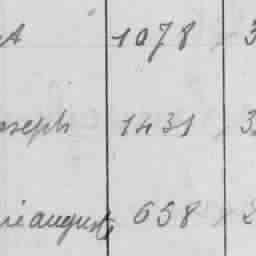 A 1078 3
oseph 1431 3
ie auguste 658 2